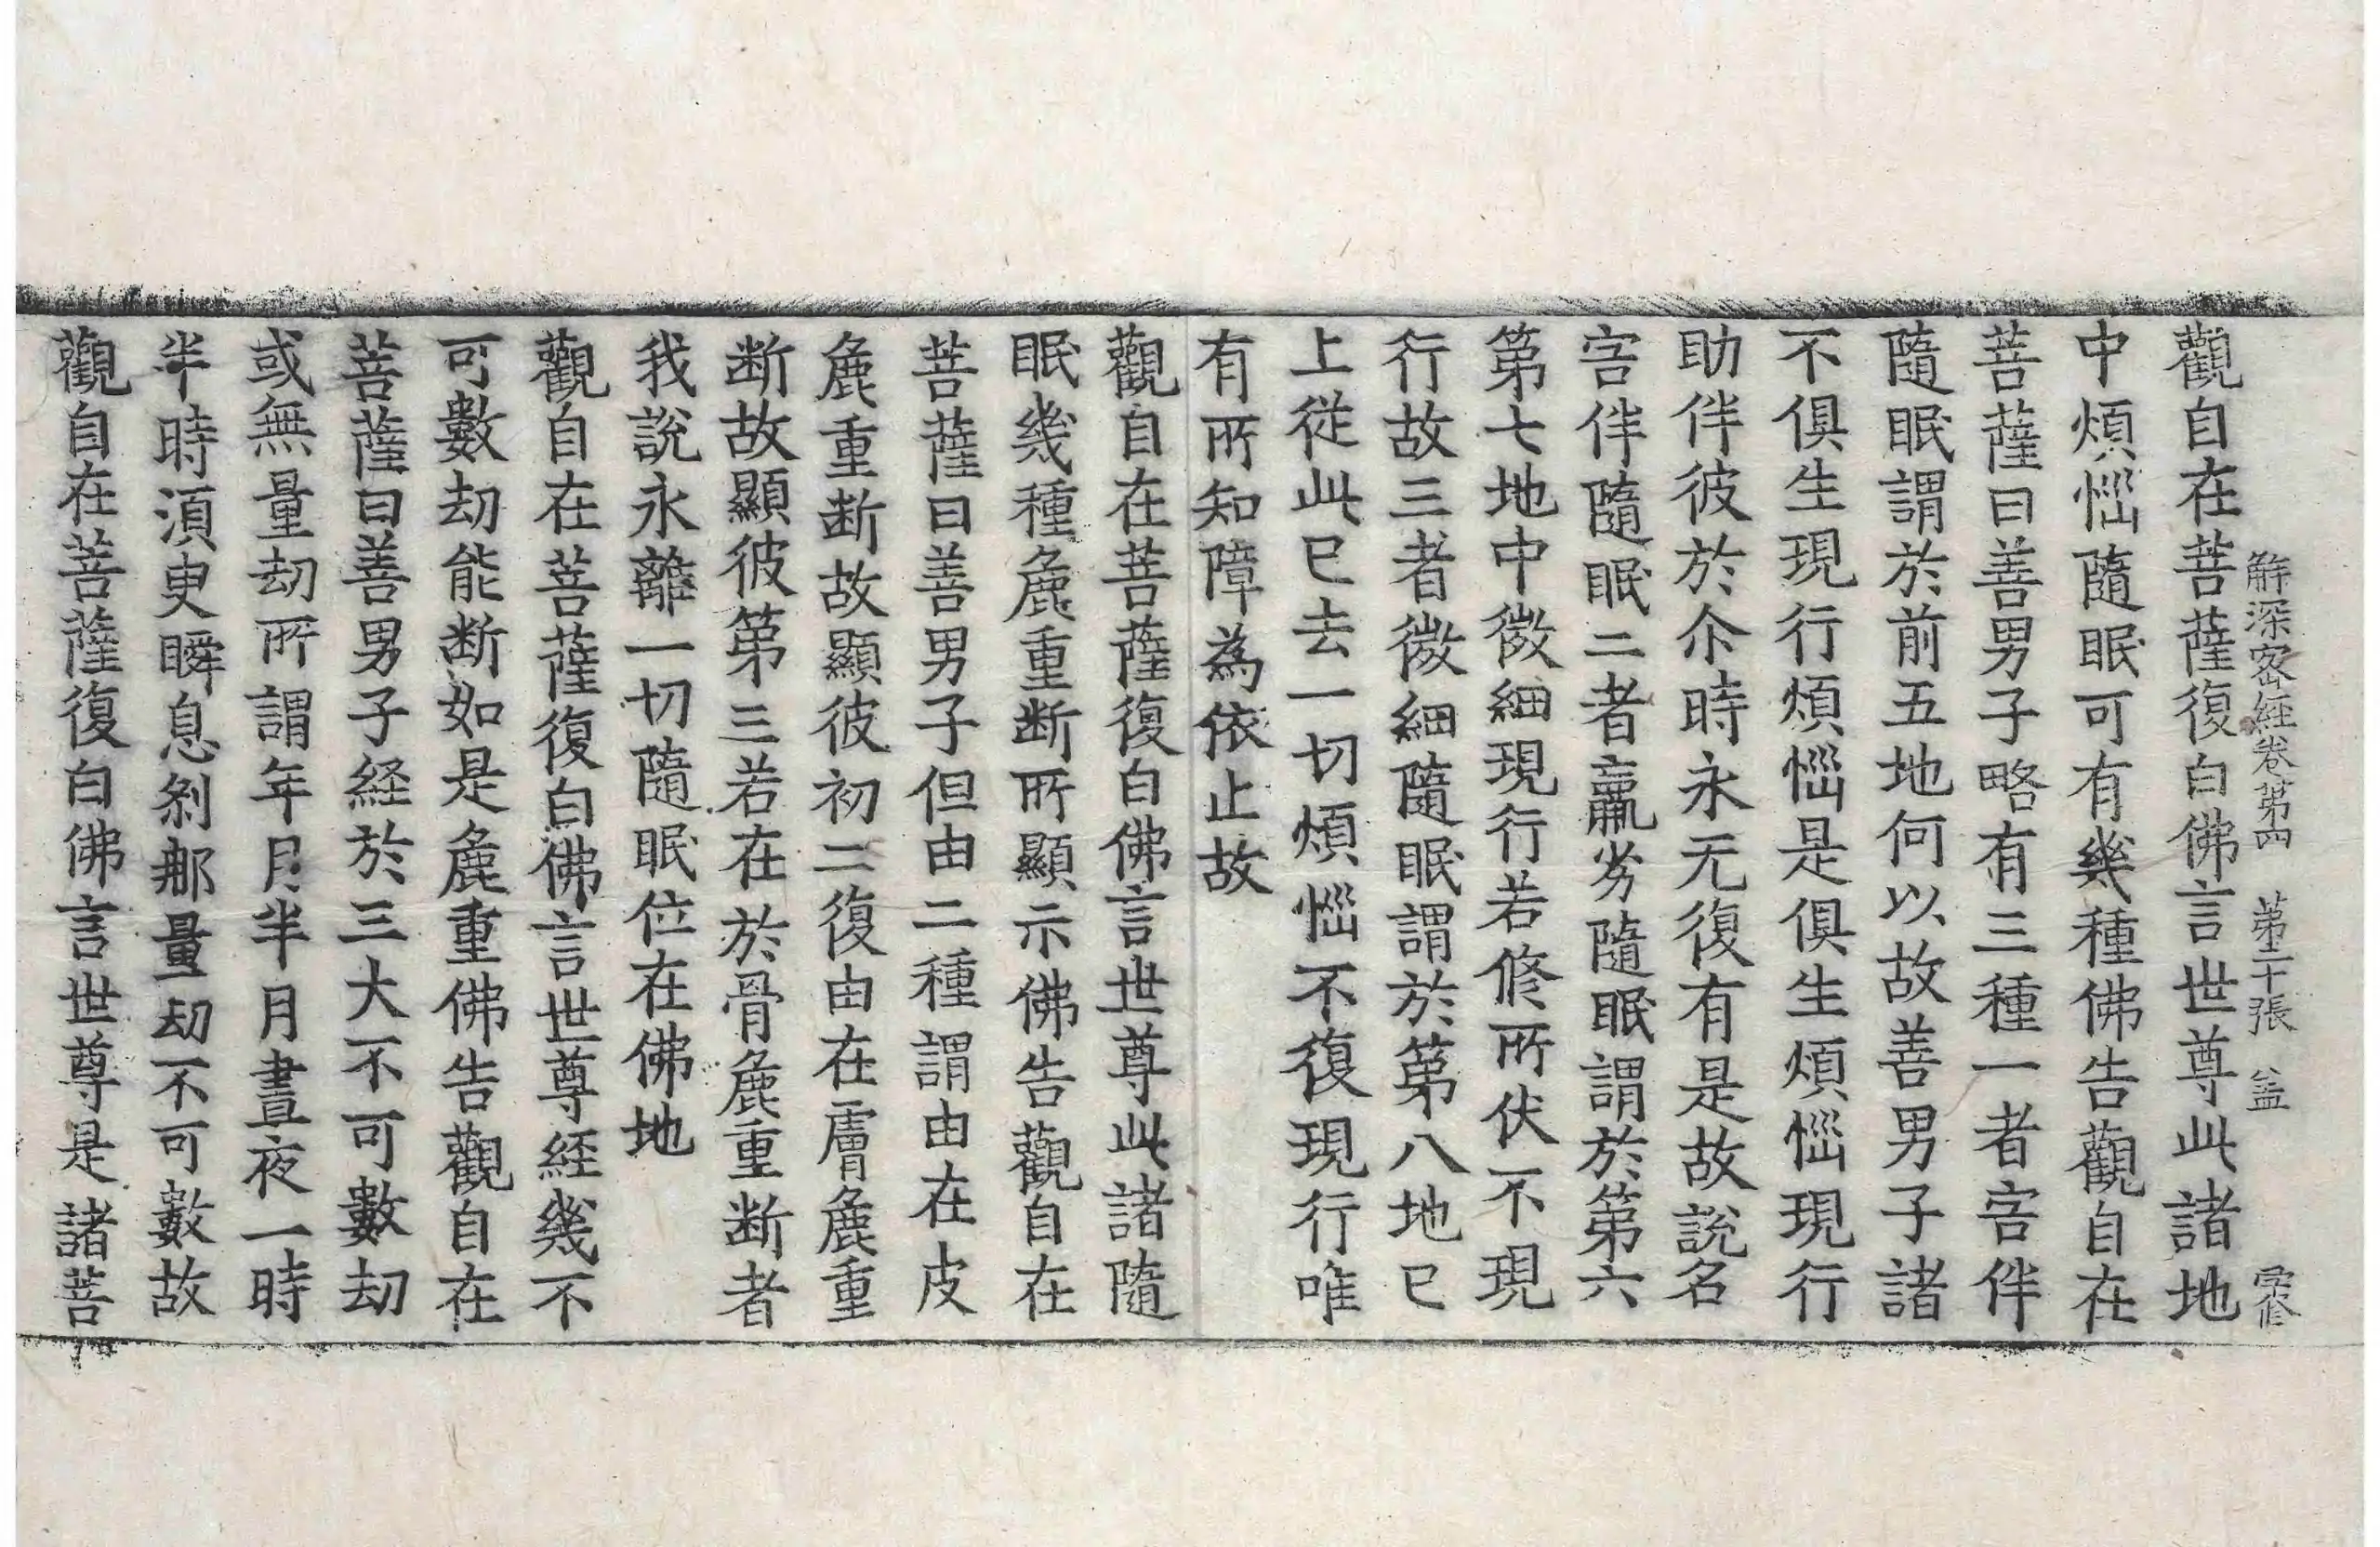 解深密経卷第四 第二十張 盖
觀自在菩薩復白佛言世尊此諸地
中煩惱隨眠可有幾種佛告觀自在
菩薩曰善男子略有三種一者害伴
隨眠謂於前五地何以故善男子諸
不俱生現行煩惱是俱生煩惱現行
助伴彼於尒時永无復有是故說名
害伴隨眠二者羸劣隨眠謂於第六
第七地中微細現行若修所伏不現
行故三者微細隨眠謂於第八地已
上從此已去一切煩惱不復現行唯
有所知障為依止故
觀自在菩薩復白佛言世尊此諸隨
眠幾種麁重断所顯示佛告觀自在
菩薩曰善男子但由二種謂由在皮
麁重断故顯彼初二復由在膚麁重
断故顯彼第三若在於骨麁重断者
我說永離一切隨眠位在佛地
觀自在菩薩復白佛言世尊経幾不
可數劫能断如是麁重佛告觀自在
菩薩曰善男子経於三大不可數劫
或無量劫所謂年月半月晝夜一時
半時須臾瞬息剎那量劫不可數故
觀自在菩薩復白佛言世尊是諸菩